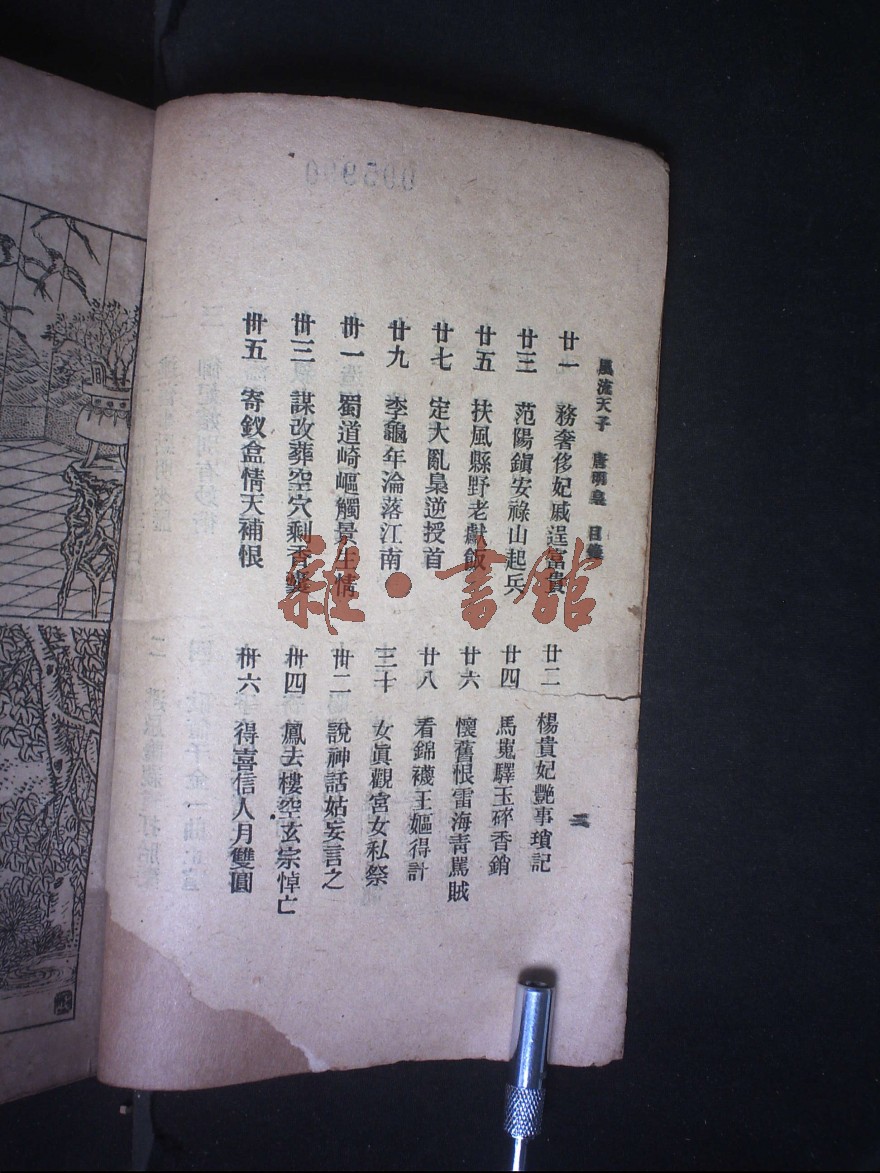 風流天子 唐明皇 目錄
廿一 務奢侈妃戚逞富貴
廿二 楊貴妃艷事瑣記
廿三 范陽鎮安祿山起兵
廿四 馬嵬驛玉碎香銷
廿五 扶風縣野老獻飯
廿六 懷舊恨雷海青罵賊
廿七 定大亂梟逆授首
廿八 看錦襪王嫗得計
廿九 李龜年淪落江南
三十 女眞觀宮女私祭
卅一 蜀道崎嶇觸景生情
卅二 說神話姑妄言之
卅三 謀改葬空穴剩香囊
卅四 鳳去樓空玄宗悼亡
卅五 寄釵盒情天補恨
卅六 得喜信人月雙圓
雜·書館